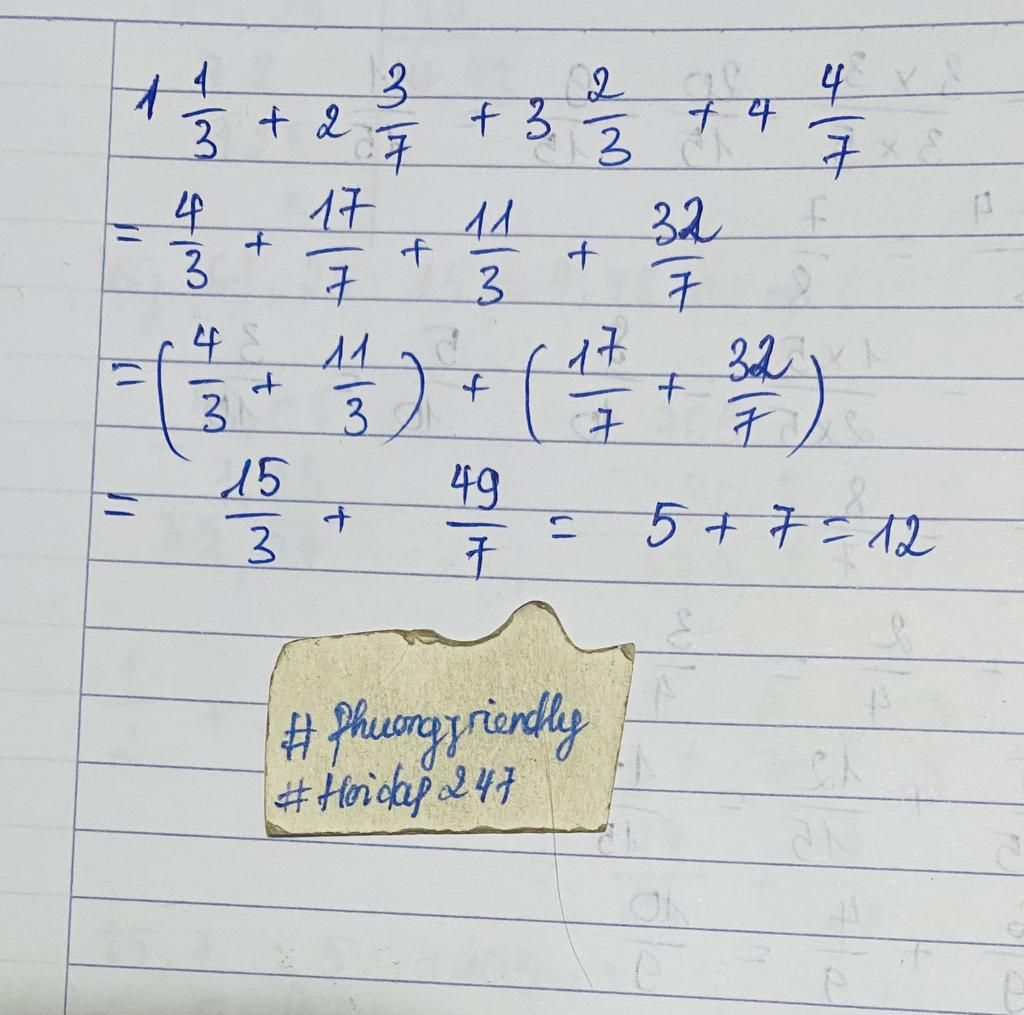 1 1/3 + 2 3/7 + 3 2/3 + 4 4/7
= 4/3 + 17/7 + 11/3 + 32/7
= (4/3 + 11/3) + (17/7 + 32/7)
= 15/3 + 49/7 = 5 + 7 = 12
# phuongfriendly
# Hoidap 247